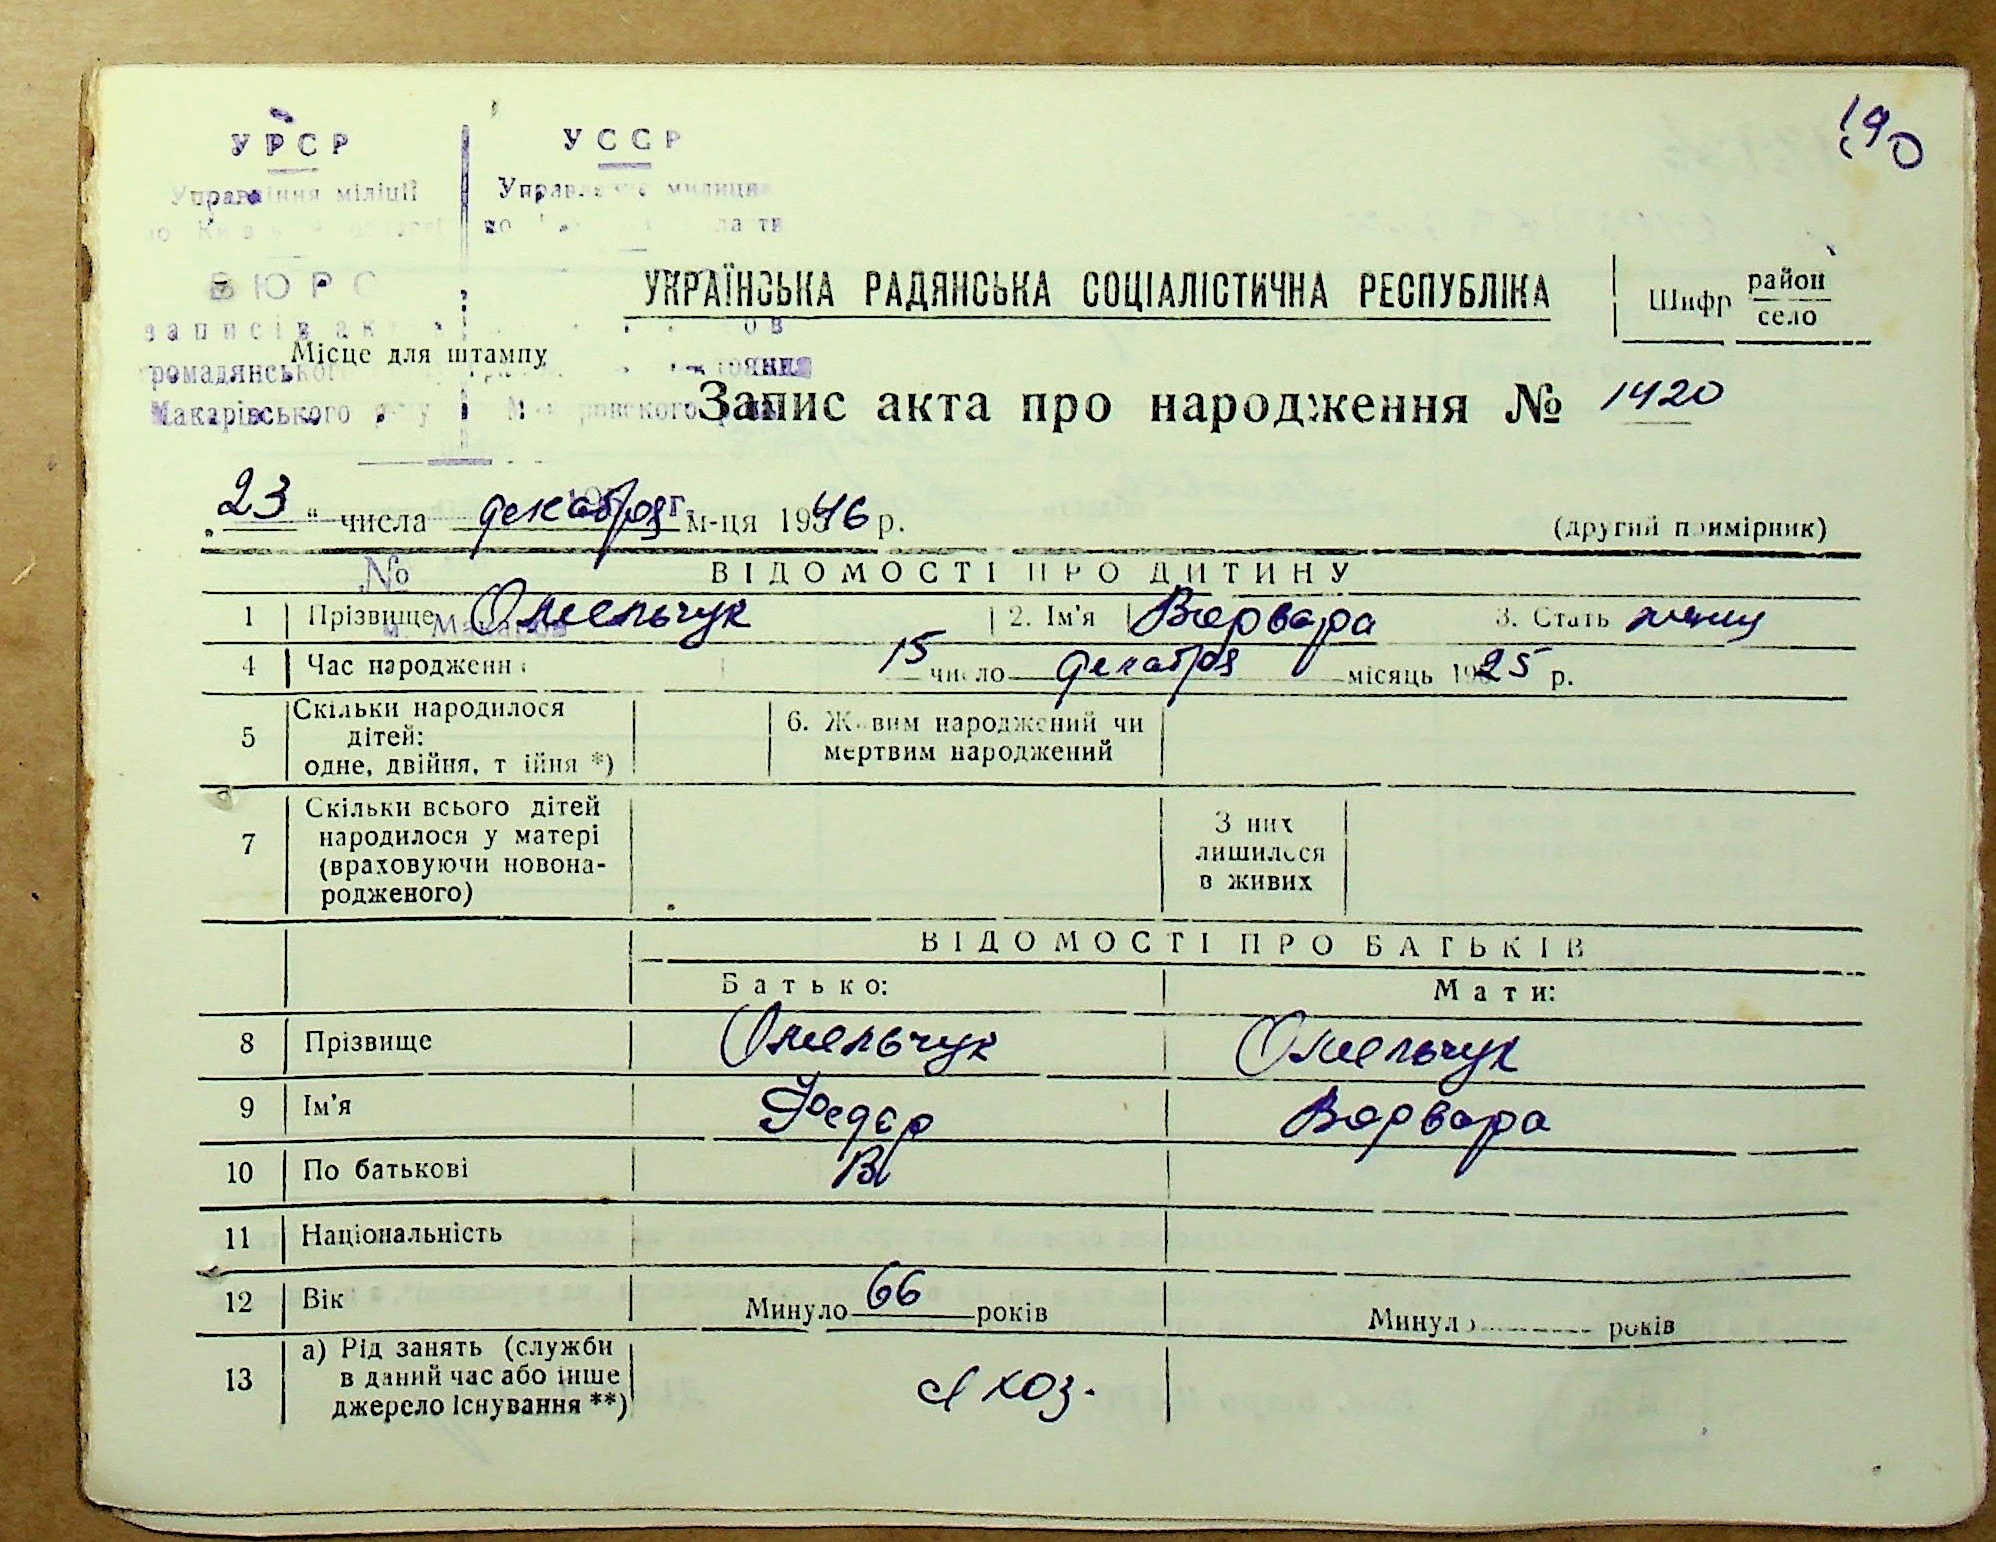 190
УРСР УССР
Управління міліції Управление милиции
БЮРО
записів
Місце для штампу
громадянського
Макарівського Макаровского
УКРАЇНСЬКА РАДЯНСЬКА СОЦІАЛІСТИЧНА РЕСПУБЛІКА
Шифр район
село
Запис акта про народження № 1420
„23“ числа декабря м-ця 1946 р.
(другий примірник)
№
ВІДОМОСТІ ПРО ДИТИНУ
м. Макаров
1 Прізвище Омельчук 2. Ім'я Варвара 3. Стать
4 Час народження 15 число декабря місяць 1925 р.
5 Скільки народилося
дітей:
одне, двійня, трійня *)
6. Живим народжений чи
мертвим народжений
7 Скільки всього дітей
народилося у матері
(враховуючи новона-
родженого)
З них
лишилося
в живих
ВІДОМОСТІ ПРО БАТЬКІВ
Батько: Мати:
8 Прізвище Омельчук Омельчук
9 Ім'я Федор Варвара
10 По батькові В
11 Національність
12 Вік Минуло 66 років Минуло років
13 а) Рід занять (служби
в даний час або інше
джерело існування **)
с/хоз.